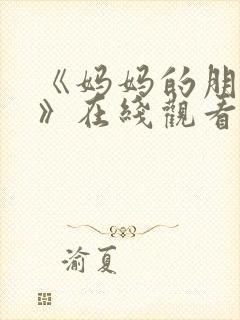 《妈妈的朋
》在綫觀看
渝夏